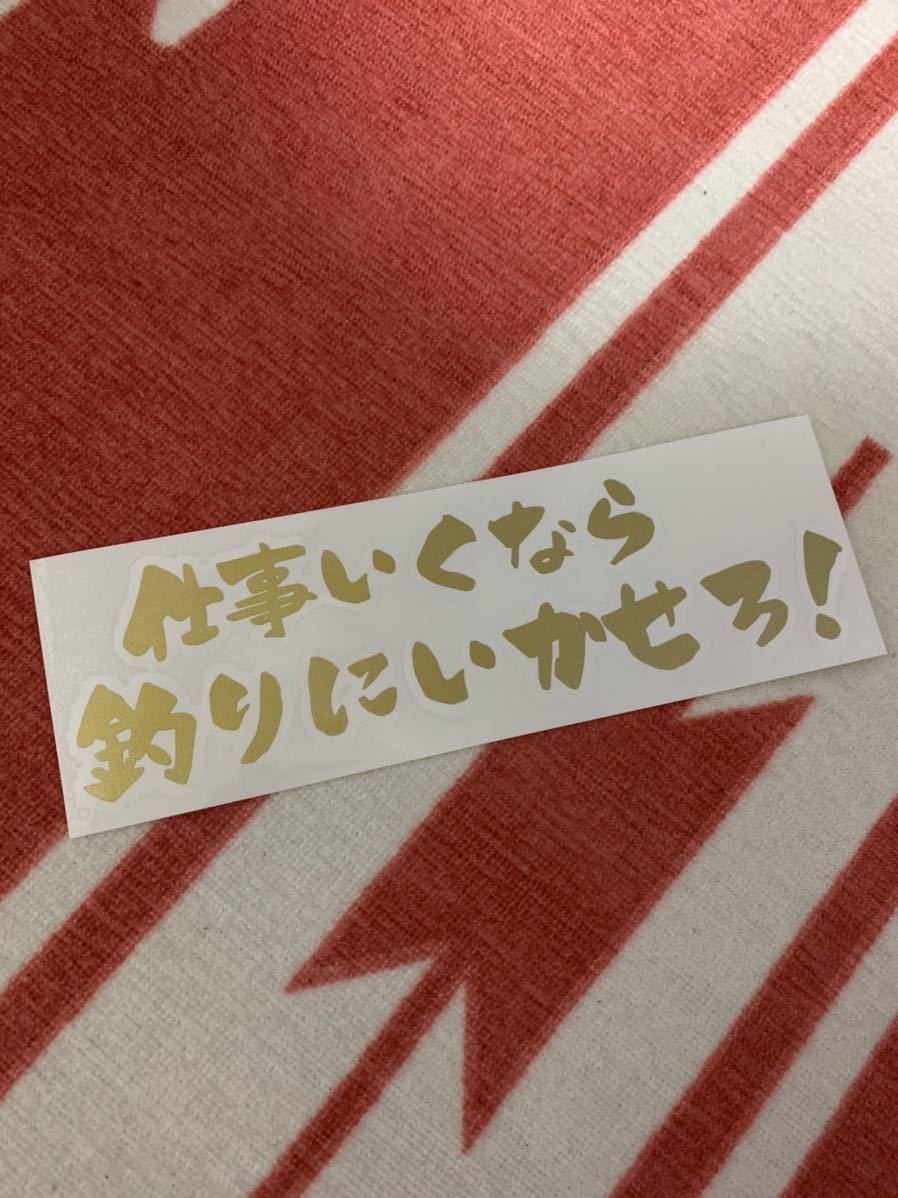 仕事いくなら
釣りにいかせろ!